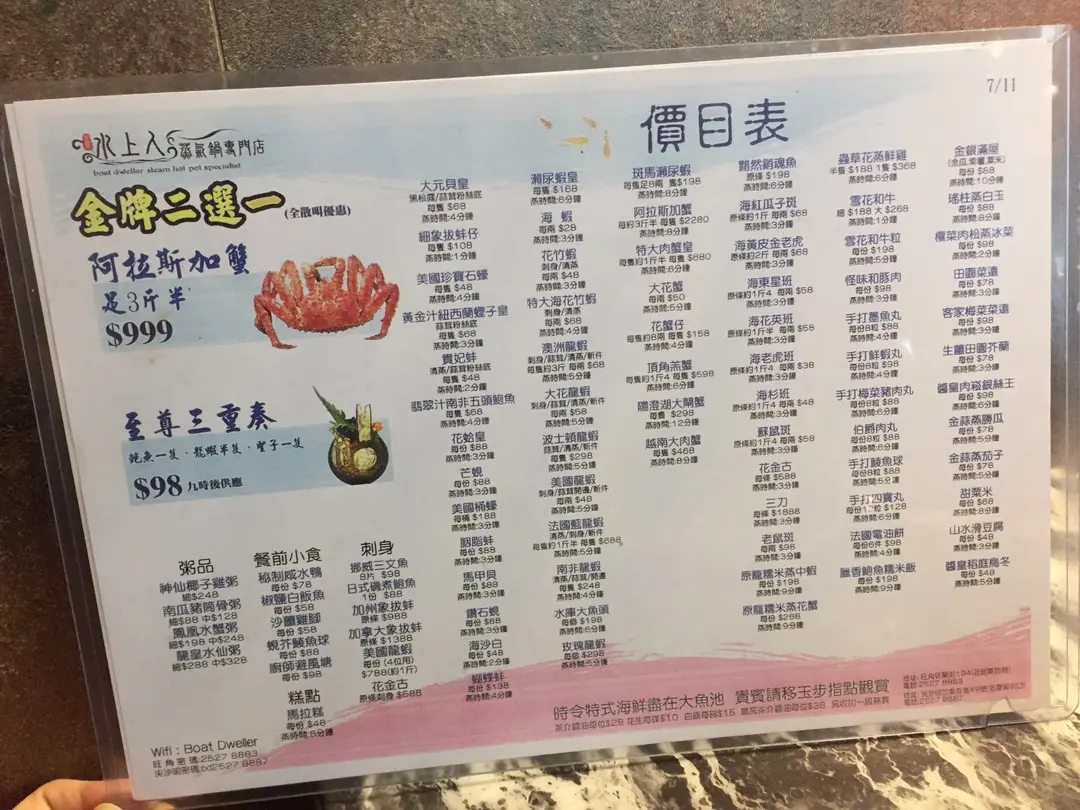 7/11
水上人蒸氣鍋專門店
boat dweller steam hot pot specialist
價目表
金牌二選一(全散叫優惠)
阿拉斯加蟹
足3斤半
$999
至尊三重奏
鮑魚一隻、龍蝦半隻、聖子一隻
$98 九時後供應
粥品
神仙椰子雞粥
細$248
南瓜豬筒骨粥
細$88 中$128
鳳凰水蟹粥
細$198 中$248
龍皇水仙粥
細$288 中$328
餐前小食
秘制咸水鴨
每份 $78
椒鹽白飯魚
每份 $58
沙薑雞腳
每份 $58
蜆芥鯪魚球
每份 $88
廚師避風塘
每份 $98
糕點
馬拉糕
每份 $48
蒸時間:8分鐘
刺身
挪威三文魚
8片 $98
日式磯煮鮑魚
1份 $88
加州象拔蚌
原條 $988
加拿大象拔蚌
原條 $1388
美國龍蝦
每份 (4位用)
$788(約1斤)
花金古
原條刺身 $588
大元貝皇
黑松露/蒜茸粉絲底
每隻 $68
蒸時間:4分鐘
細象拔蚌仔
每隻 $108
蒸時間:1分鐘
美國珍寶石蠔
每隻 $48
蒸時間:4分鐘
黃金汁紐西蘭蟶子皇
蒜茸粉絲底
每隻 $68
蒸時間:3分鐘
貴妃蚌
清蒸/蒜茸粉絲底
每隻 $48
蒸時間:2分鐘
翡翠汁南非五頭鮑魚
每隻 $68
蒸時間:4分鐘
花蛤皇
每份 $88
蒸時間:3分鐘
芒蜆
每份 $88
蒸時間:3分鐘
美國桶蠔
每桶 $188
蒸時間:3分鐘
胭脂蚌
每份 $88
蒸時間:5分鐘
馬甲貝
每份 $88
蒸時間:3分鐘
鑽石蜆
每份 $88
蒸時間:3分鐘
海沙白
每份 $48
蒸時間:2分鐘
蝴蝶蚌
每份 $138
蒸時間:4分鐘
瀨尿蝦皇
每隻 $168
蒸時間:6分鐘
海 蝦
每兩 $28
蒸時間:3分鐘
花竹蝦
刺身/清蒸
每兩 $48
蒸時間:3分鐘
特大海花竹蝦
刺身/清蒸
每兩 $68
蒸時間:4分鐘
澳洲龍蝦
刺身/蒜茸/清蒸/斬件
每隻約3斤 每兩 $68
蒸時間:5分鐘
大花龍蝦
刺身/清蒸/蒜茸/斬件
每兩 $58
蒸時間:5分鐘
波士頓龍蝦
蒜茸/清蒸/斬件
每隻 $298
蒸時間:5分鐘
美國龍蝦
刺身/蒜茸開邊/斬件
每兩 $48
蒸時間:5分鐘
法國藍龍蝦
清蒸/刺身/斬件
每隻約1斤半 每隻 $688
蒸時間:5分鐘
南非龍蝦
清蒸/蒜茸/開邊
每隻 $248
蒸時間:4分鐘
水庫大魚頭
每個 $198
蒸時間:6分鐘
玫瑰龍蝦
每個 $298
蒸時間:5分鐘
斑馬瀨尿蝦
每隻足8兩 隻$198
蒸時間:8分鐘
阿拉斯加蟹
每約3斤半 每隻 $2280
蒸時間:8分鐘
特大肉蟹皇
每隻約1斤半 每隻 $680
蒸時間:6分鐘
大花蟹
每兩 $50
蒸時間:5分鐘
花蟹仔
每隻約8兩 每隻 $158
蒸時間:4分鐘
頂角羔蟹
每隻約1斤4 每隻 $598
蒸時間:6分鐘
陽澄湖大閘蟹
每隻 $298
蒸時間:12分鐘
越南大肉蟹
每隻 $468
蒸時間:8分鐘
黯然銷魂魚
原條 $198
蒸時間:6分鐘
海紅瓜子斑
原條約1斤 每兩 $68
蒸時間:3分鐘
海黃皮金老虎
原條約2斤 每兩 $68
蒸時間:3分鐘
海東星班
原條約1斤4 每兩 $58
蒸時間:3分鐘
海花英班
原條約1斤半 每兩 $58
蒸時間:3分鐘
海老虎班
原條約1斤4 每兩 $38
蒸時間:3分鐘
海杉班
原條約1斤4 每兩 $48
蒸時間:3分鐘
蘇鼠斑
原條約1斤4 每兩 $58
蒸時間:3分鐘
花金古
每條 $588
蒸時間:3分鐘
三刀
每條 $1888
蒸時間:3分鐘
老鼠斑
每兩 $198
蒸時間:3分鐘
原龍糯米蒸中蝦
每份 $198
蒸時間:9分鐘
原龍糯米蒸花蟹
每份 $268
蒸時間:9分鐘
蟲草花蒸鮮雞
半隻 $188 1隻 $368
蒸時間:6分鐘
雪花和牛
細 $188 大 $268
蒸時間:1分鐘
雪花和牛粒
每份 $198
蒸時間:5分鐘
怪味和豚肉
每份 $98
蒸時間:3分鐘
手打墨魚丸
每份8粒 $88
蒸時間:5分鐘
手打鮮蝦丸
每份8粒 $98
蒸時間:4分鐘
手打梅菜豬肉丸
每份8粒 $88
蒸時間:5分鐘
伯爵肉丸
每份8粒 $88
蒸時間:6分鐘
手打鯪魚球
每份8粒 $88
蒸時間:5分鐘
手打四寶丸
每份12粒 $128
蒸時間:6分鐘
法國電油餅
每份6件 $98
蒸時間:4分鐘
臘香鮑魚糯米飯
每份 $198
蒸時間:9分鐘
金銀滿屋
(金瓜,紫薯,粟米)
每份 $68
蒸時間:10分鐘
瑤柱蒸白玉
每份 $88
蒸時間:8分鐘
欖菜肉松蒸冰菜
每份 $98
蒸時間:2分鐘
田園菜遠
每份 $78
蒸時間:3分鐘
客家梅菜菜遠
每份 $98
蒸時間:3分鐘
生薑田園芥蘭
每份 $78
蒸時間:3分鐘
醬皇肉崧銀絲王
每份 $98
蒸時間:6分鐘
金蒜蒸勝瓜
每份 $78
蒸時間:5分鐘
金蒜蒸茄子
每份 $78
蒸時間:5分鐘
甜粟米
每份 $68
蒸時間:8分鐘
山水滑豆腐
每份 $48
蒸時間:3分鐘
醬皇稻庭烏冬
每份 $48
蒸時間:5分鐘
時令特式海鮮盡在大魚池 貴賓請移玉步指點觀賞
茶介醬油每位$28 花生每碟$10 白飯每碗$15 嘉宾茶介醬油每位$38 另收加一服務費
電話:2527 8883
電話:2527 8887
Wifi : Boat Dweller
旺角密碼:2527 8883
尖沙咀密碼:bd2527 8887